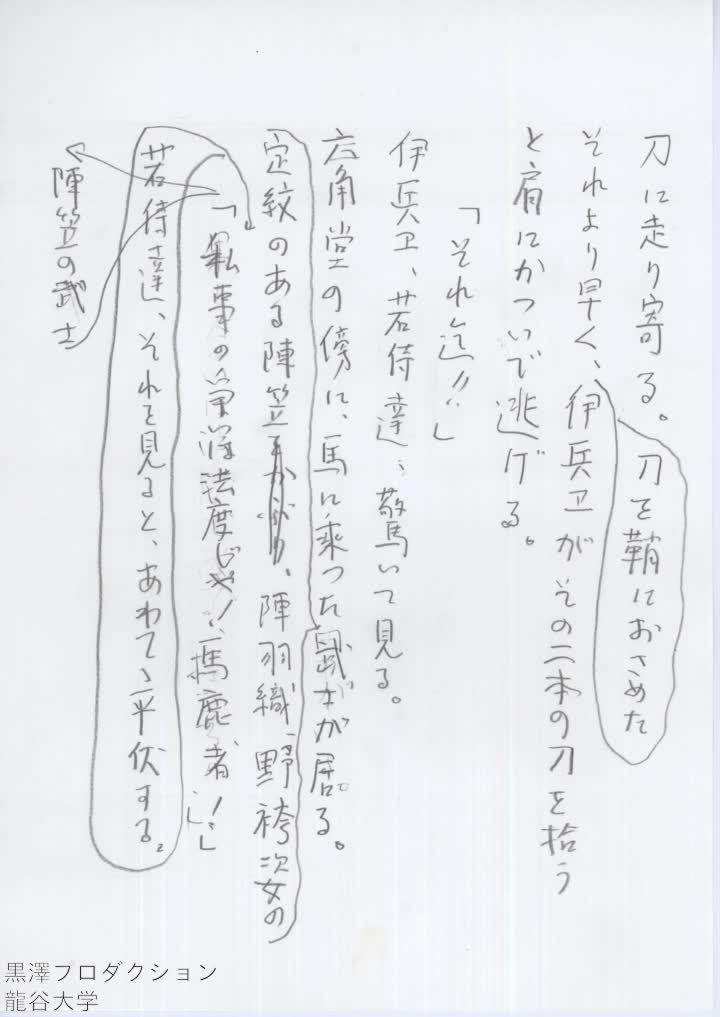 刀に走り寄る。刀を鞘におさめた
それより早く、伊兵卫がその二本の刀を拾う
と肩にかついで逃げる。
「それ迄!!」
伊兵卫、若侍達、驚いて見る。
六角堂の傍に、馬に乗った武士が居る。
定紋のある陣笠かぶり、陣羽織、野袴、次女の
「私事の 法度じゃ!、馬鹿者!!」
若侍達、それを見ると、あわてゝ平伏する。
陣笠の武士
黒澤プロダクション
龍谷大学